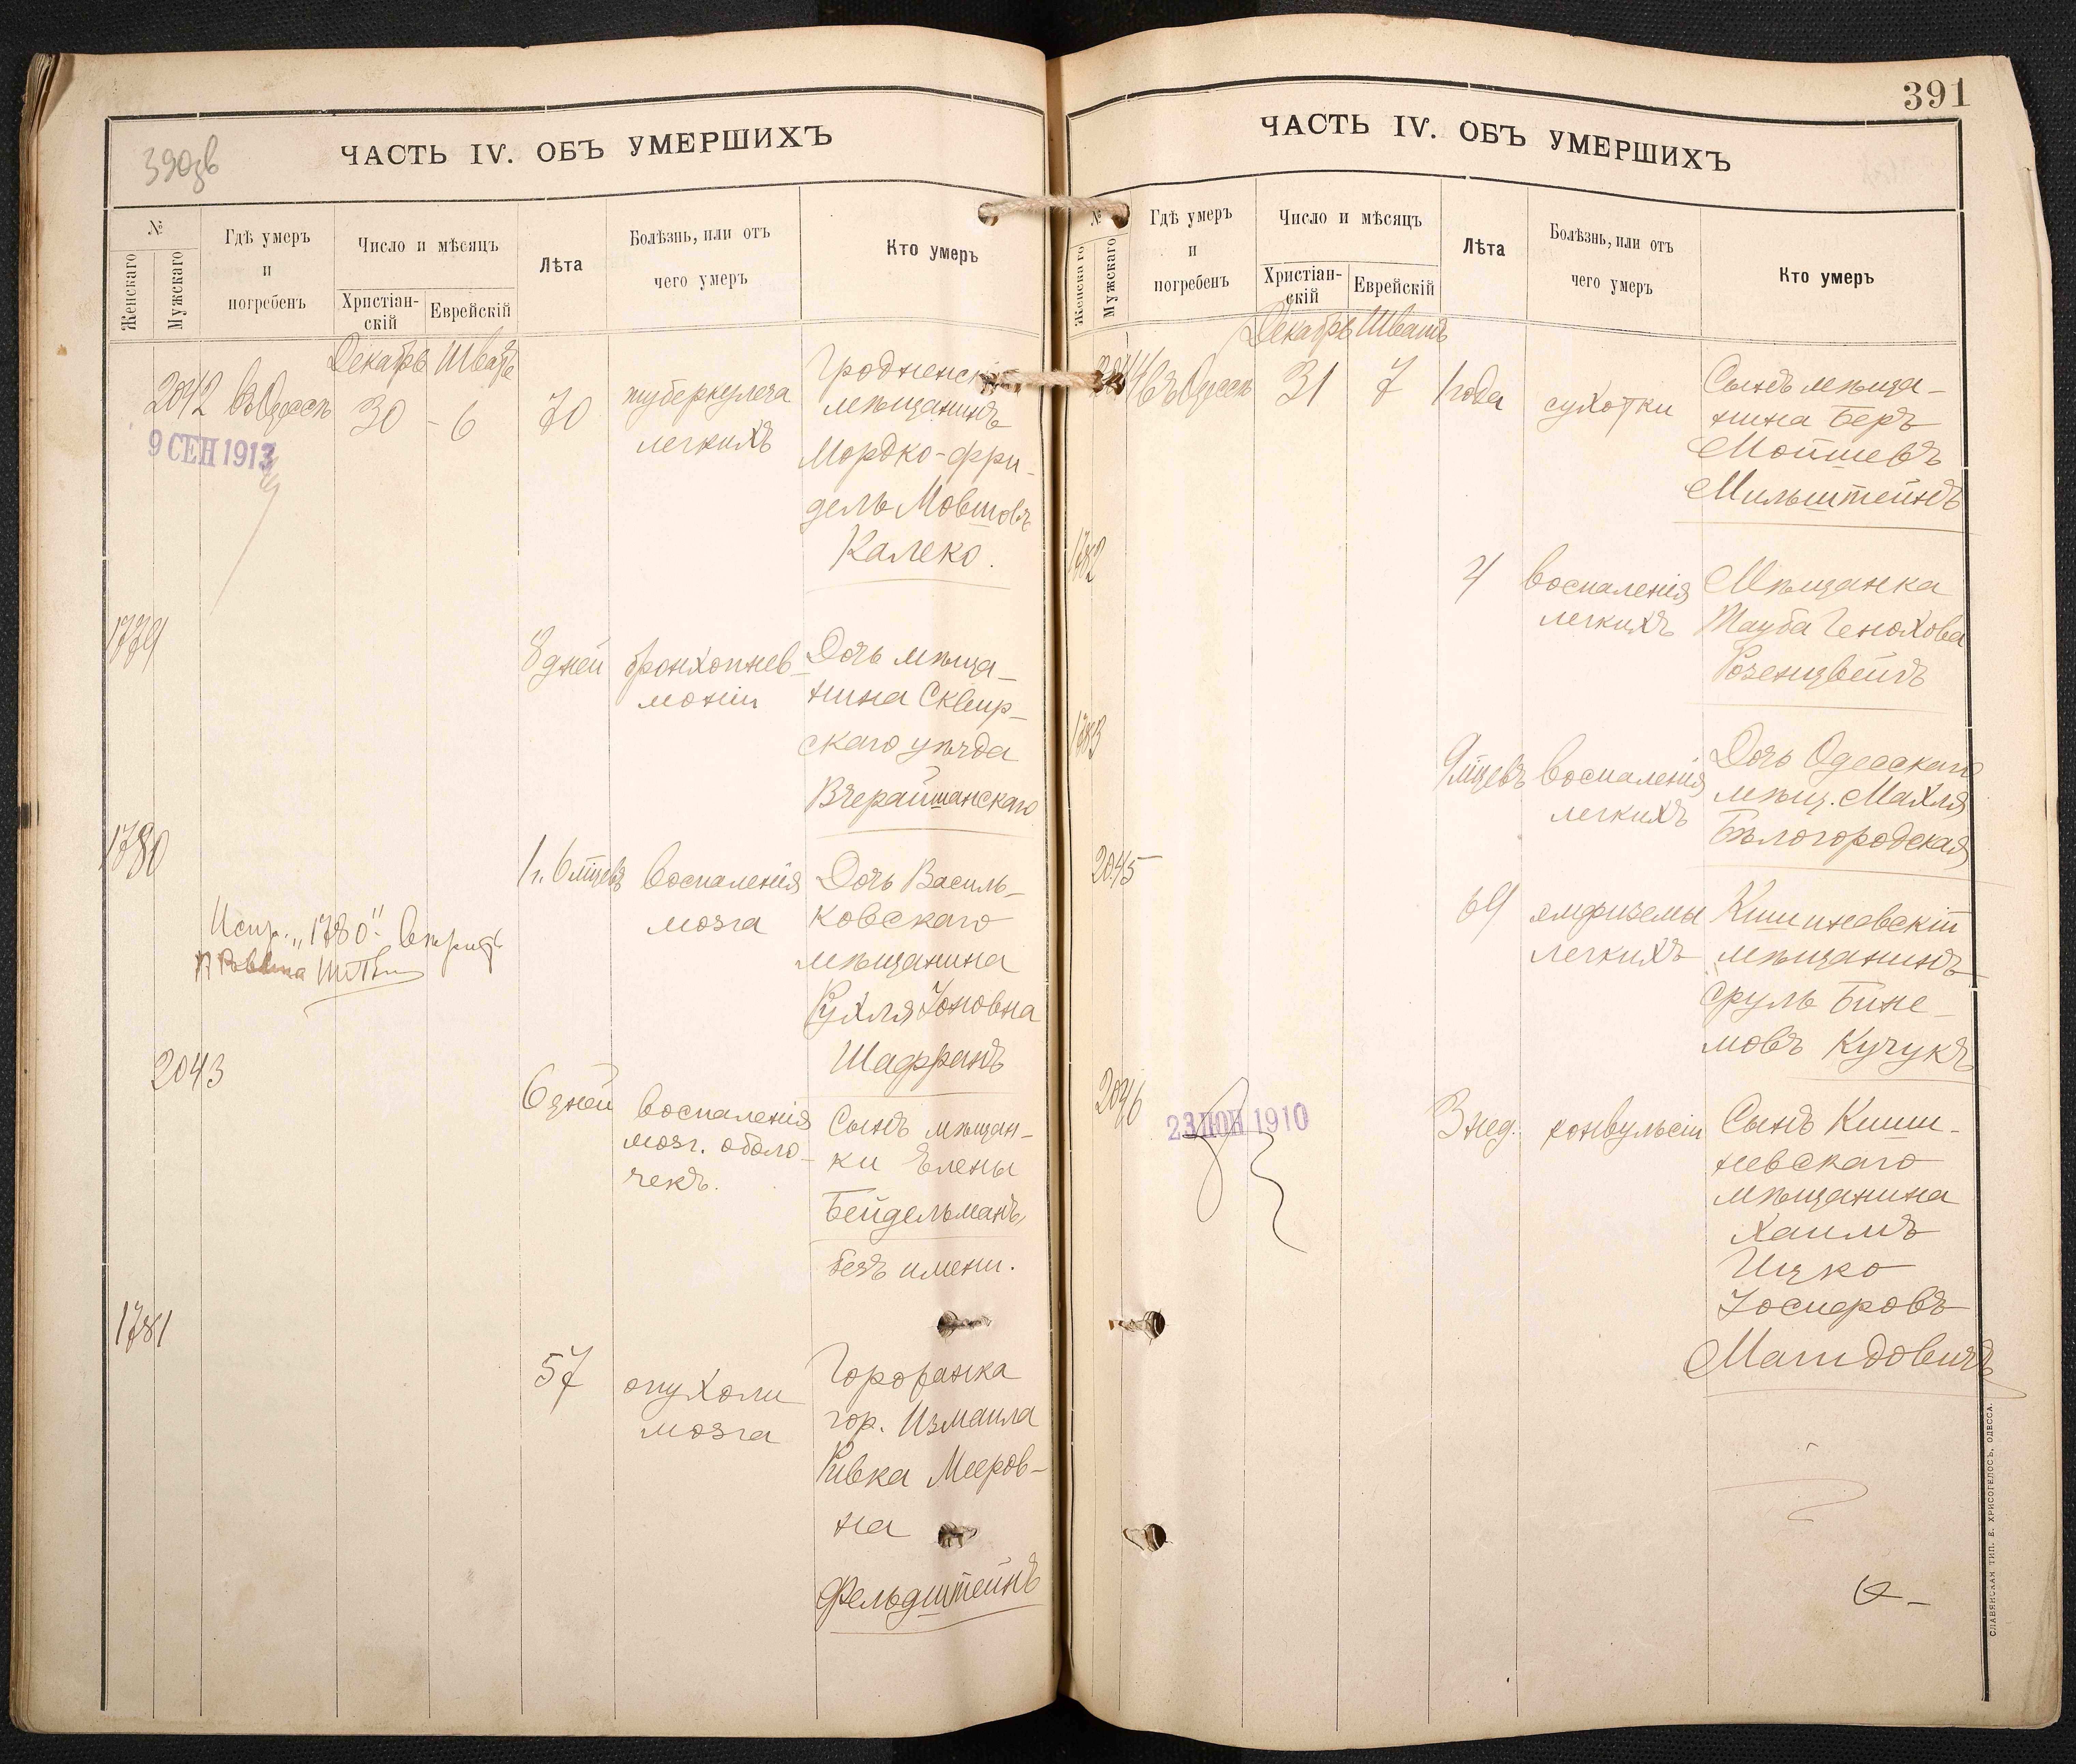 390зв
ЧАСТЬ IV. ОБЪ УМЕРШИХЪ
№
Женскаго
Мужскаго
Гдѣ умеръ
и
погребенъ
Число и мѣсяцъ
Христіан-
скій
Еврейскій
Лѣта
Болѣзнь, или отъ
чего умеръ
Кто умеръ
Декабрь Шватъ
2042 въ Одессѣ 30 - 6 70
9 СЕН 1913
туберкулеза
легкихъ
Гродненскій
мѣщанинъ
Мордко-Фри-
дель Мовшовъ
Калеко.
1779
8 дней
бронхопнев-
моніи
Дочь мѣща-
нина Сквир-
скаго уѣзда
Вчерайшанскаго
1780
1 г. 6 мѣцевъ
воспаленія
мозга
Дочь Василь-
ковскаго
мѣщанина
Рухля Іоновна
Шафранъ
Испр. „1780" вѣрно
2043
6 дней
воспаленія
мозг. оболо-
чекъ.
Сынъ мѣщан-
ки Елены
Бейдельманъ,
безъ имени.
1781
57
опухоли
мозга
Горожанка
гор. Измаила
Ривка Мееров-
на
Фельдштейнъ
391
ЧАСТЬ IV. ОБЪ УМЕРШИХЪ
№
Женскаго
Мужскаго
Гдѣ умеръ
и
погребенъ
Число и мѣсяцъ
Христіан-
скій
Еврейскій
Лѣта
Болѣзнь, или отъ
чего умеръ
Кто умеръ
Декабрь Шватъ
2044 въ Одессѣ 31 7 1 года
сухотки
Сынъ мѣща-
нина Беръ
Мойшевъ
Мильштейнъ
1782
4
воспаленія
легкихъ
Мѣщанка
Тауба Генохова
Розенцвейгъ
1783
9 мѣцевъ
воспаленія
легкихъ
Дочь Одесскаго
мѣщ. Махля
Бѣлогородская
2045
64
эмфиземы
легкихъ
Кишиневскій
мѣщанинъ
Сруль Бине-
мовъ Кучукъ
2046
23 ІЮН 1910
3 нед.
конвульсіи
Сынъ Киши-
невскаго
мѣщанина
Хаимъ
Ицко
Іосифовъ
Магидовичъ
СЛАВЯНСКАЯ ТИП. Е. ХРИСОГЕЛОСЪ, ОДЕССА.